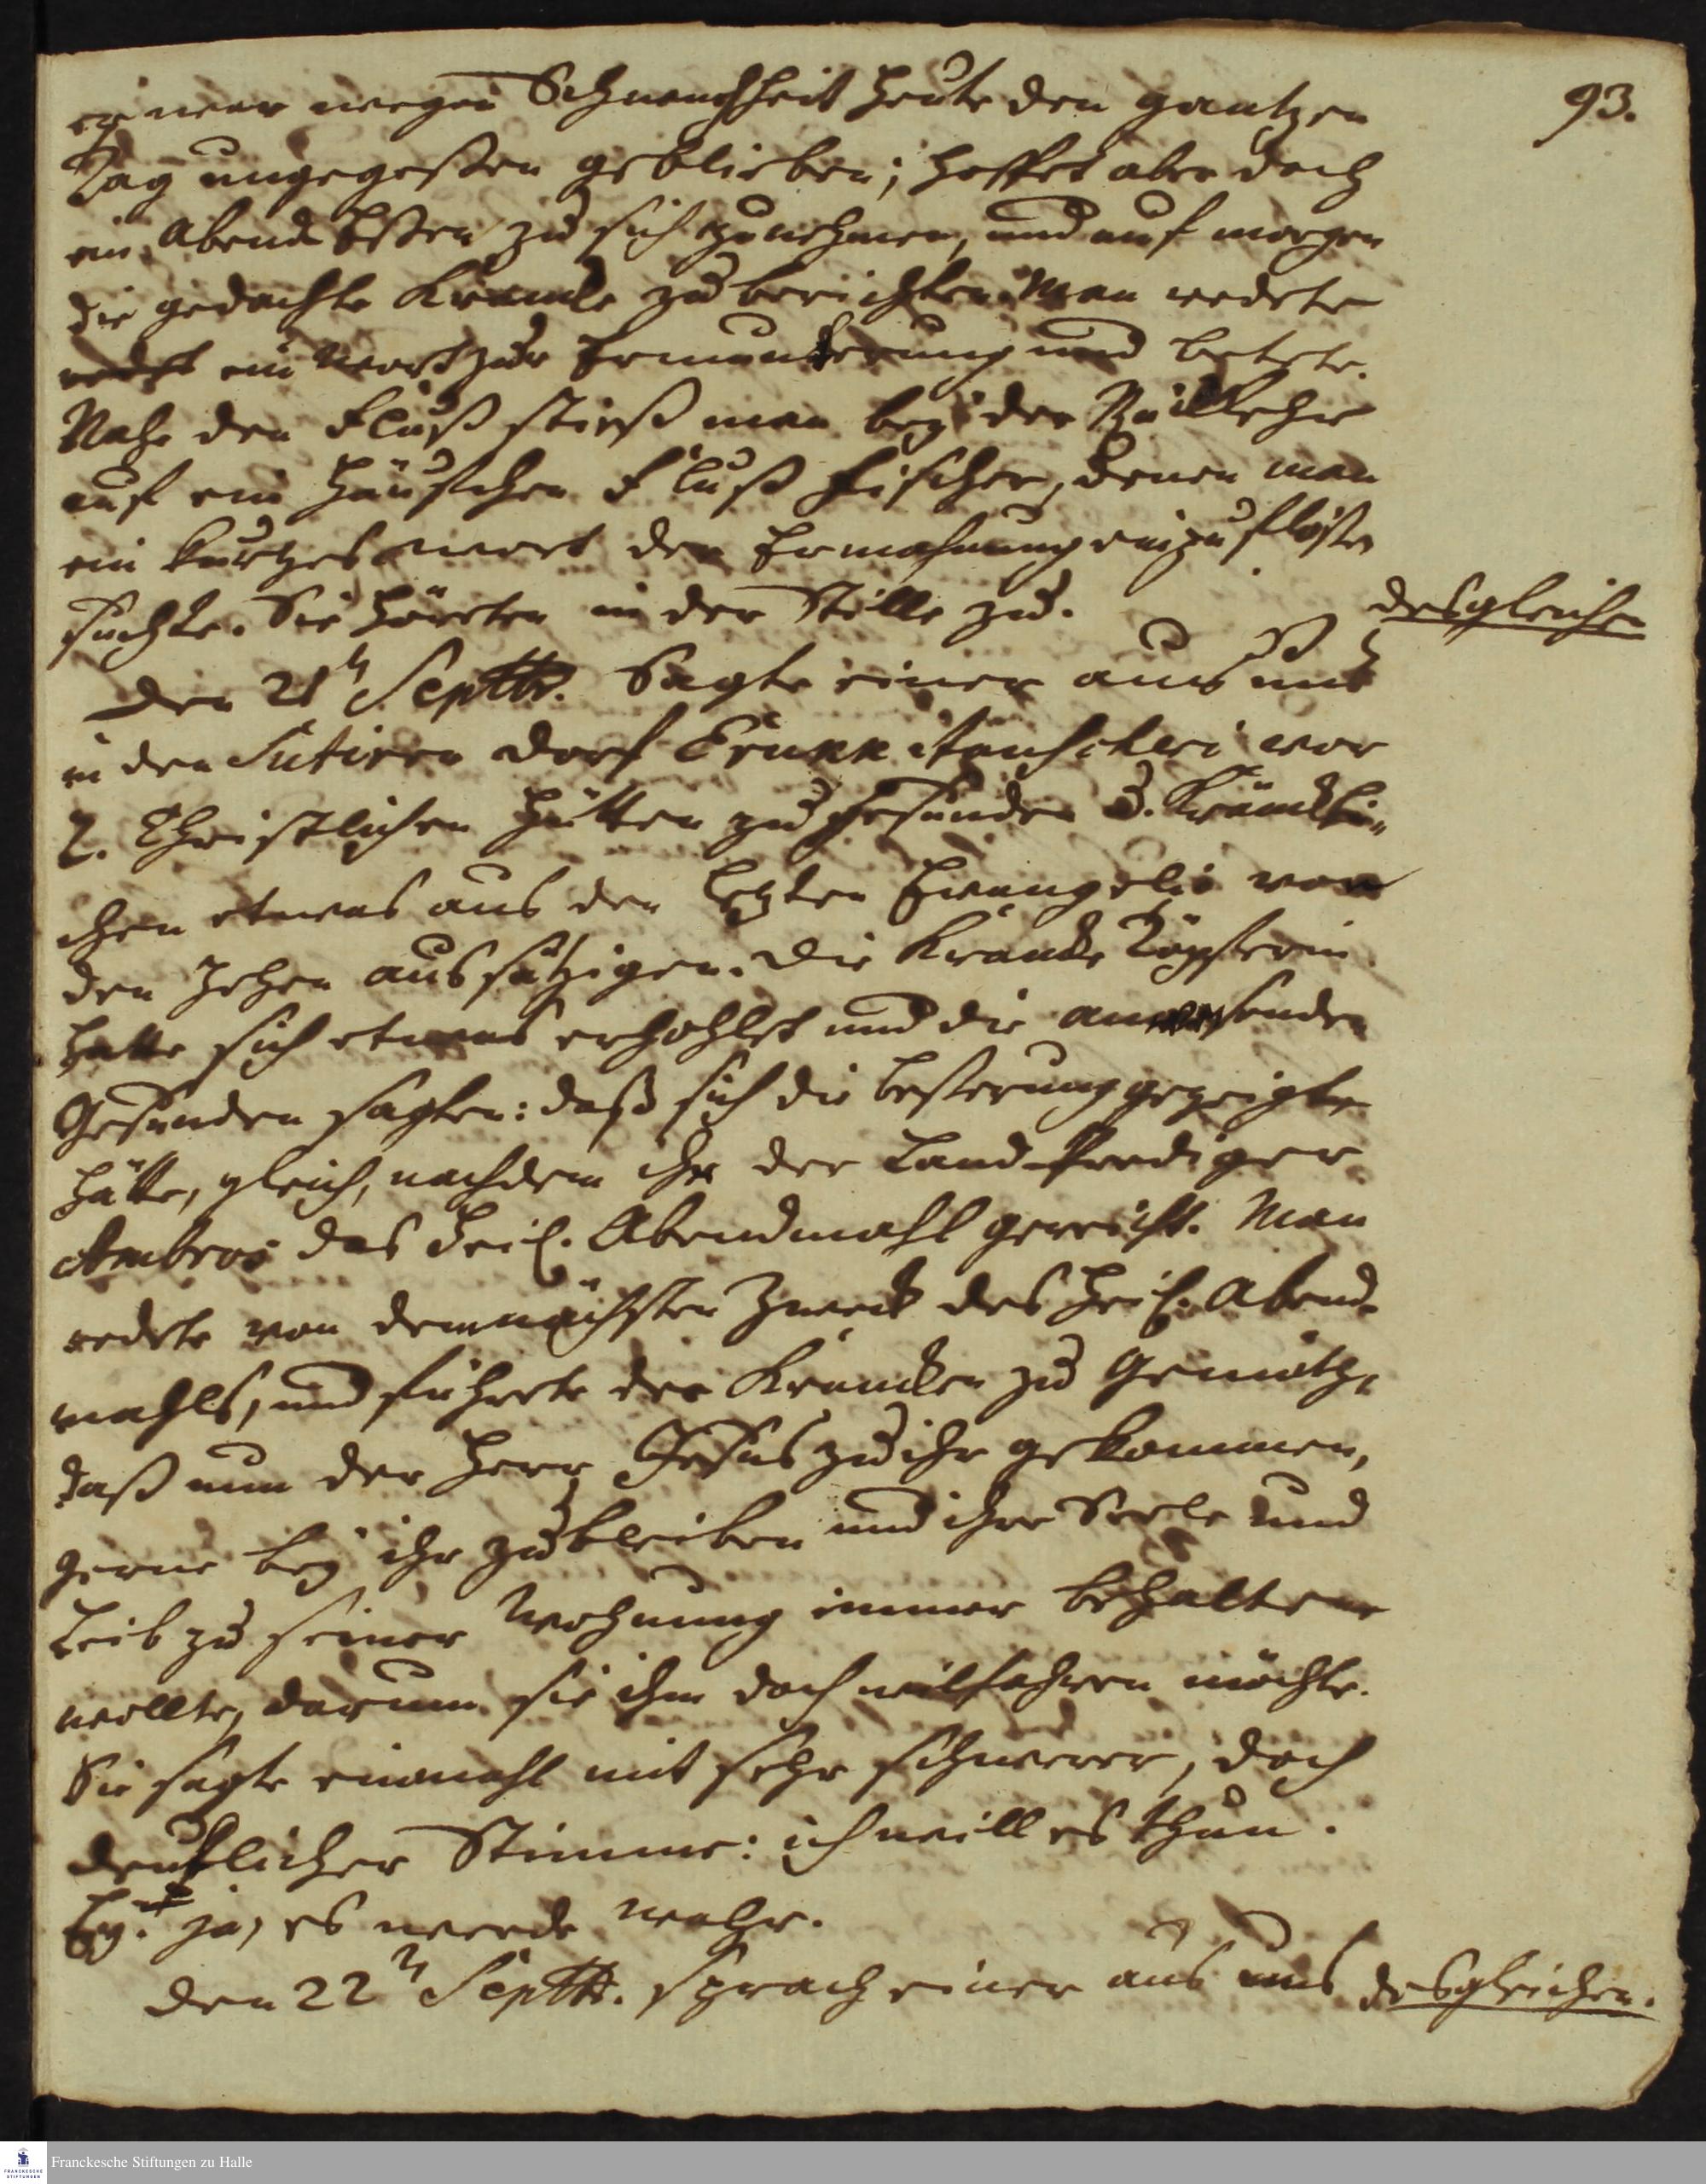 93.
er war wegen Schwachheit heute den gantzen
Tag ungegeßen geblieben; hoffet aber doch
ein Abend Eßen zu sich zunehmen, und auf morgen
die gedachte Krancke zu berichten. Man redete
redet ein Wort zur Ermunterung und betete.
Nahe den Fluß stieß man bey der Rückkehr
auf ein Häufchen Fluß Fischer, denen man
ein kurtzes wort der Ermahnung einzuflößen
suchte. Sie hörten in der Stille zu.
desgleichen
Den 21t Septbr. Sagte einer aus uns
in den Sutirer Dorf Erukkitanscheri vor
2. Christlichen Hütten zu Gesunden u. Kräncklichen
etwas aus den lezten Evangelio von
den Zehen aussätzigen. Die Krancke Töpferin
hatte sich etwas erhohlet und die anwesenden
Gesunden sagten: daß sich die beßerung gezeigte
hätte, gleich, nachdem ihr der Land-Prediger
Ambros das Heil. Abendmahl gereicht. Man
redete von dem nächsten Zweck des Heil. Abend-
mahls, und führete der Krancken zu Gemüth,
daß nun der Herr Jesus zu ihr gekommen,
gerne bey ihr zu bleiben und ihre Seele und
Leib zu seiner Wohnung immer behalten
wollte, darum sie ihm doch wilfahren möchte.
Sie sagte einmahl mit sehr schwerer, doch
deutlicher Stimme: ich will es thun.
Ey! ja, es werde wahr.
Den 22t Septbr. sprach einer aus uns
desgleichen.
Franckesche Stiftungen zu Halle